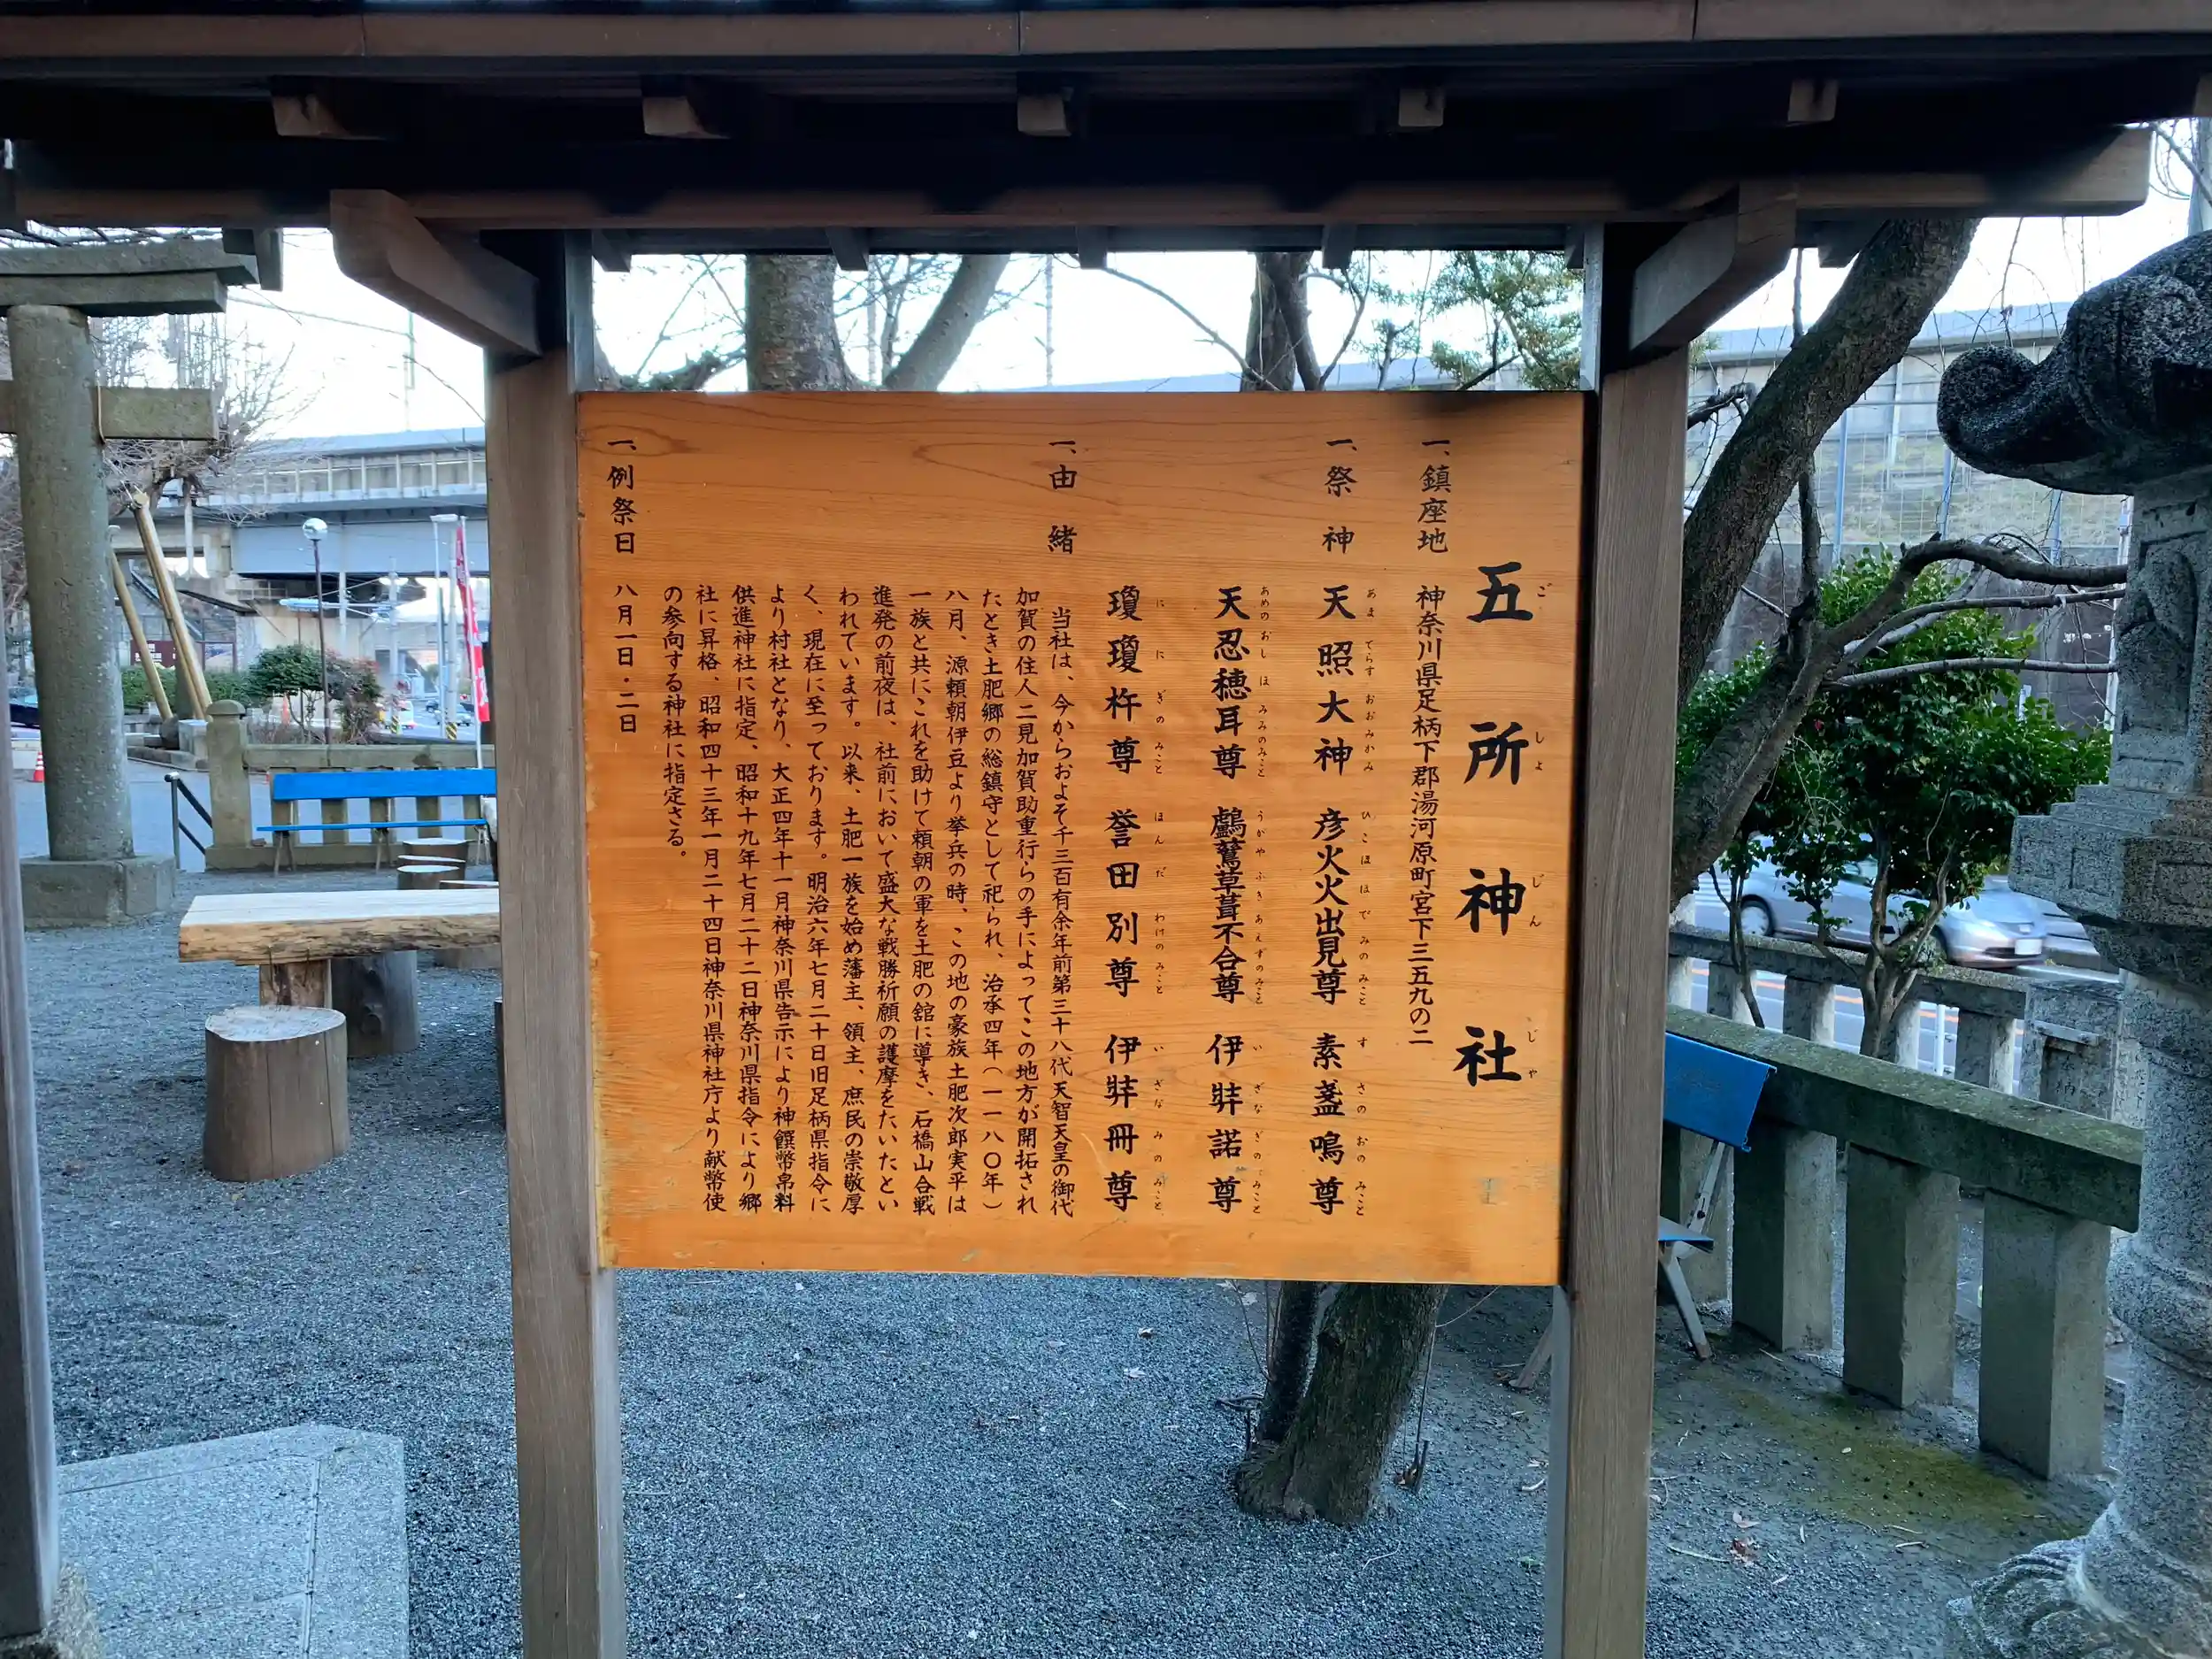 五所神社
ごしょじんじゃ
一、鎮座地 神奈川県足柄下郡湯河原町宮下三五九の二
一、祭神 天照大神 彦火火出見尊 素盞鳴尊
あまてらすおおみかみ ひこほほでみのみこと すさのおのみこと
天忍穂耳尊 鸕鶿草葺不合尊 伊弉諾尊
あめのおしほみみのみこと うがやふきあえずのみこと いざなぎのみこと
瓊瓊杵尊 誉田別尊 伊弉冊尊
ににぎのみこと ほんだわけのみこと いざなみのみこと
一、由緒
当社は、今からおよそ千三百有余年前第三十八代天智天皇の御代
加賀の住人二見加賀助重行らの手によってこの地方が開拓され
たとき土肥郷の総鎮守として祀られ、治承四年(一一八〇年)
八月、源頼朝伊豆より挙兵の時、この地の豪族土肥次郎実平は
一族と共にこれを助けて頼朝の軍を土肥の舘に導き、石橋山合戦
進発の前夜は、社前において盛大な戦勝祈願の護摩をたいたとい
われています。以来、土肥一族を始め藩主、領主、庶民の崇敬厚
く、現在に至っております。明治六年七月二十日旧足柄県指令に
より村社となり、大正四年十一月神奈川県告示により神饌幣帛料
供進神社に指定、昭和十九年七月二十二日神奈川県指令により郷
社に昇格、昭和四十三年一月二十四日神奈川県神社庁より献幣使
の参向する神社に指定さる。
一、例祭日 八月一日・二日